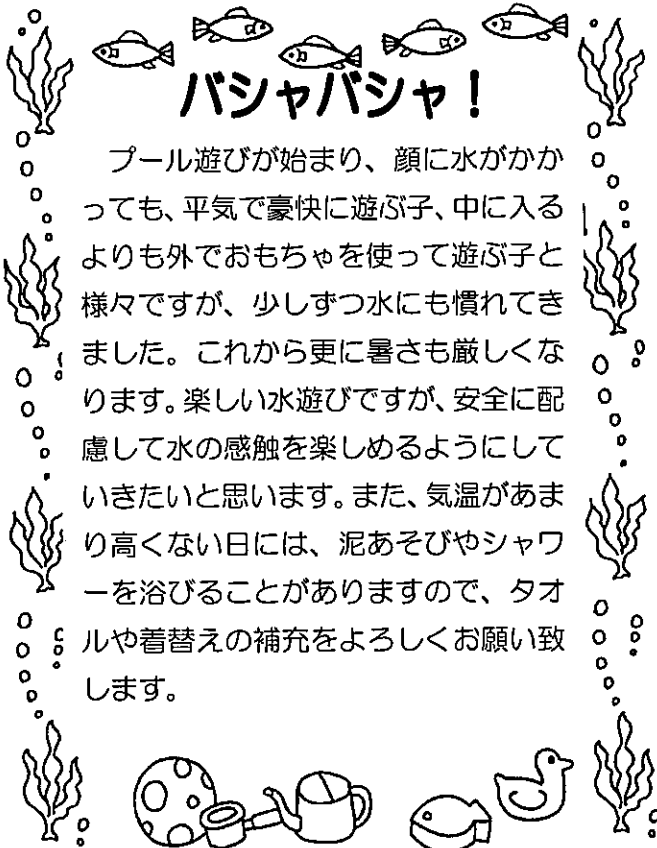 バシャバシャ！
プール遊びが始まり、顔に水がかか
っても、平気で豪快に遊ぶ子、中に入る
よりも外でおもちゃを使って遊ぶ子と
様々ですが、少しずつ水にも慣れてき
ました。これから更に暑さも厳しくな
ります。楽しい水遊びですが、安全に配
慮して水の感触を楽しめるようにして
いきたいと思います。また、気温があま
り高くない日には、泥あそびやシャワ
ーを浴びることがありますので、タオ
ルや着替えの補充をよろしくお願い致
します。